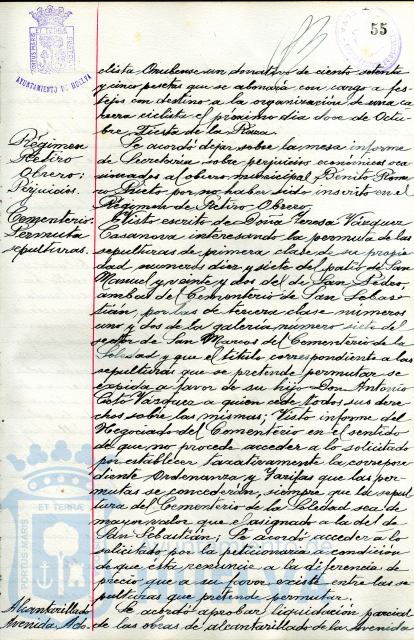 PORTUS MARIS
ET TERRÆ
AYUNTAMIENTO DE HUELVA
55
clista Onubense un donativo de ciento setenta
y cinco pesetas que se abonará con cargo a fes-
tejos con destino a la organización de una ca
rrera ciclista el próximo día doce de Octu-
bre, Fiesta de la Raza.
Régimen
Retiro
Obrero:
Perjuicios.
Se acordó dejar sobre la mesa informe
de Secretaría sobre perjuicios económicos oca
sionados al obrero municipal Benito Rome
ro Prieto por no haber sido inscrito en el
Régimen de Retiro Obrero.
Cementerio:
Permuta
sepulturas.
Visto escrito de Doña Teresa Vázquez
Casanova interesando la permuta de las
sepulturas de primera clase de su propie
dad números diez y siete del patio de San
Manuel y veinte y dos del de San Pedro,
ambas del Cementerio de San Sebas-
tián, por las de tercera clase números
uno y dos de la galería número siete del
sector de San Marcos del Cementerio de la
Soledad y que el título correspondiente a las
sepulturas que se pretende permutar se
expida a favor de su hijo Don Antonio
Vázquez a quien cede todos sus dere
chos sobre las mismas; Visto informe del
Negociado del Cementerio en el sentido
de que no procede acceder a lo solicitado
por establecer taxativamente la correspon
diente Ordenanza y Tarifas que las per-
mutas se concederán, siempre que la sepul
tura del Cementerio de la Soledad sea de
mayor valor que el asignado a la del de
San Sebastián; Se acordó acceder a lo
solicitado por la peticionaria a condición
de que ésta renuncie a la diferencia de
precio que a su favor existe entre las se
pulturas que pretende permutar.
Alcantarillado
Avenida
Se acordó aprobar liquidación parcial
de las obras de alcantarillado de la Avenida
PORTUS MARIS
ET TERRÆ
Ayuntamiento de